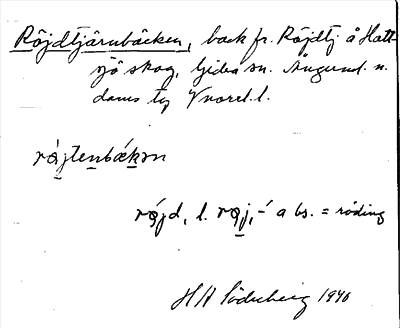 Röjdtjärnbäcken, back fr. Röjdtj å Hatt-
sjö skog, Gideå sn. Ångerml. n.
doms tg Vnorrl. l.
röjtenbækən
röjd, l. röj, -´ a bs. = röding
H H Söderberg 1946